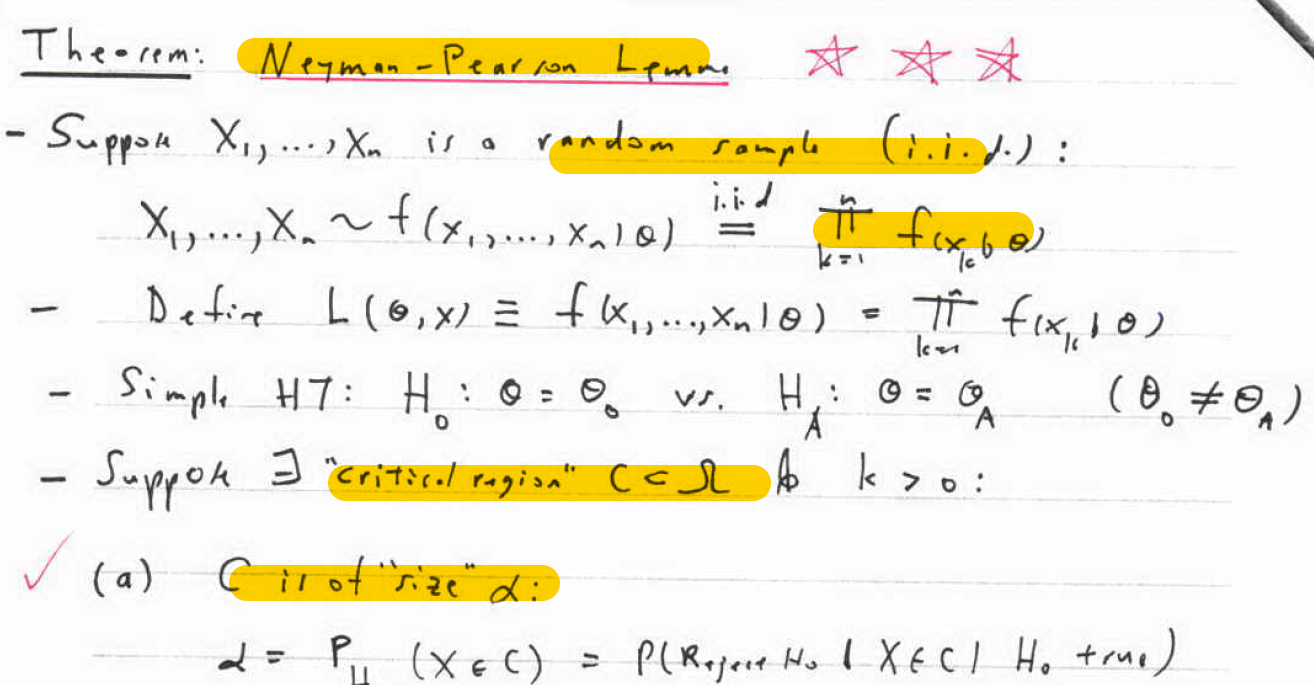 Theorem: Neyman-Pearson Lemma
- Suppose X₁, ..., Xₙ is a random sample (i.i.d.):
X₁, ..., Xₙ ~ f(x₁, ..., xₙ | θ) i.i.d = ∏ₖ₌₁ⁿ f(xₖ | θ)
- Define L(θ, x) ≡ f(x₁, ..., xₙ | θ) = ∏ₖ₌₁ⁿ f(xₖ | θ)
- Simple HT: H₀: θ = θ₀ vs. H_A: θ = θ_A (θ₀ ≠ θ_A)
- Suppose ∃ "critical region" C ⊂ Ω & k > 0:
✓ (a) C is of "size" α:
α = P_H (X ∈ C) = P(Reject H₀ | X ∈ C | H₀ true)